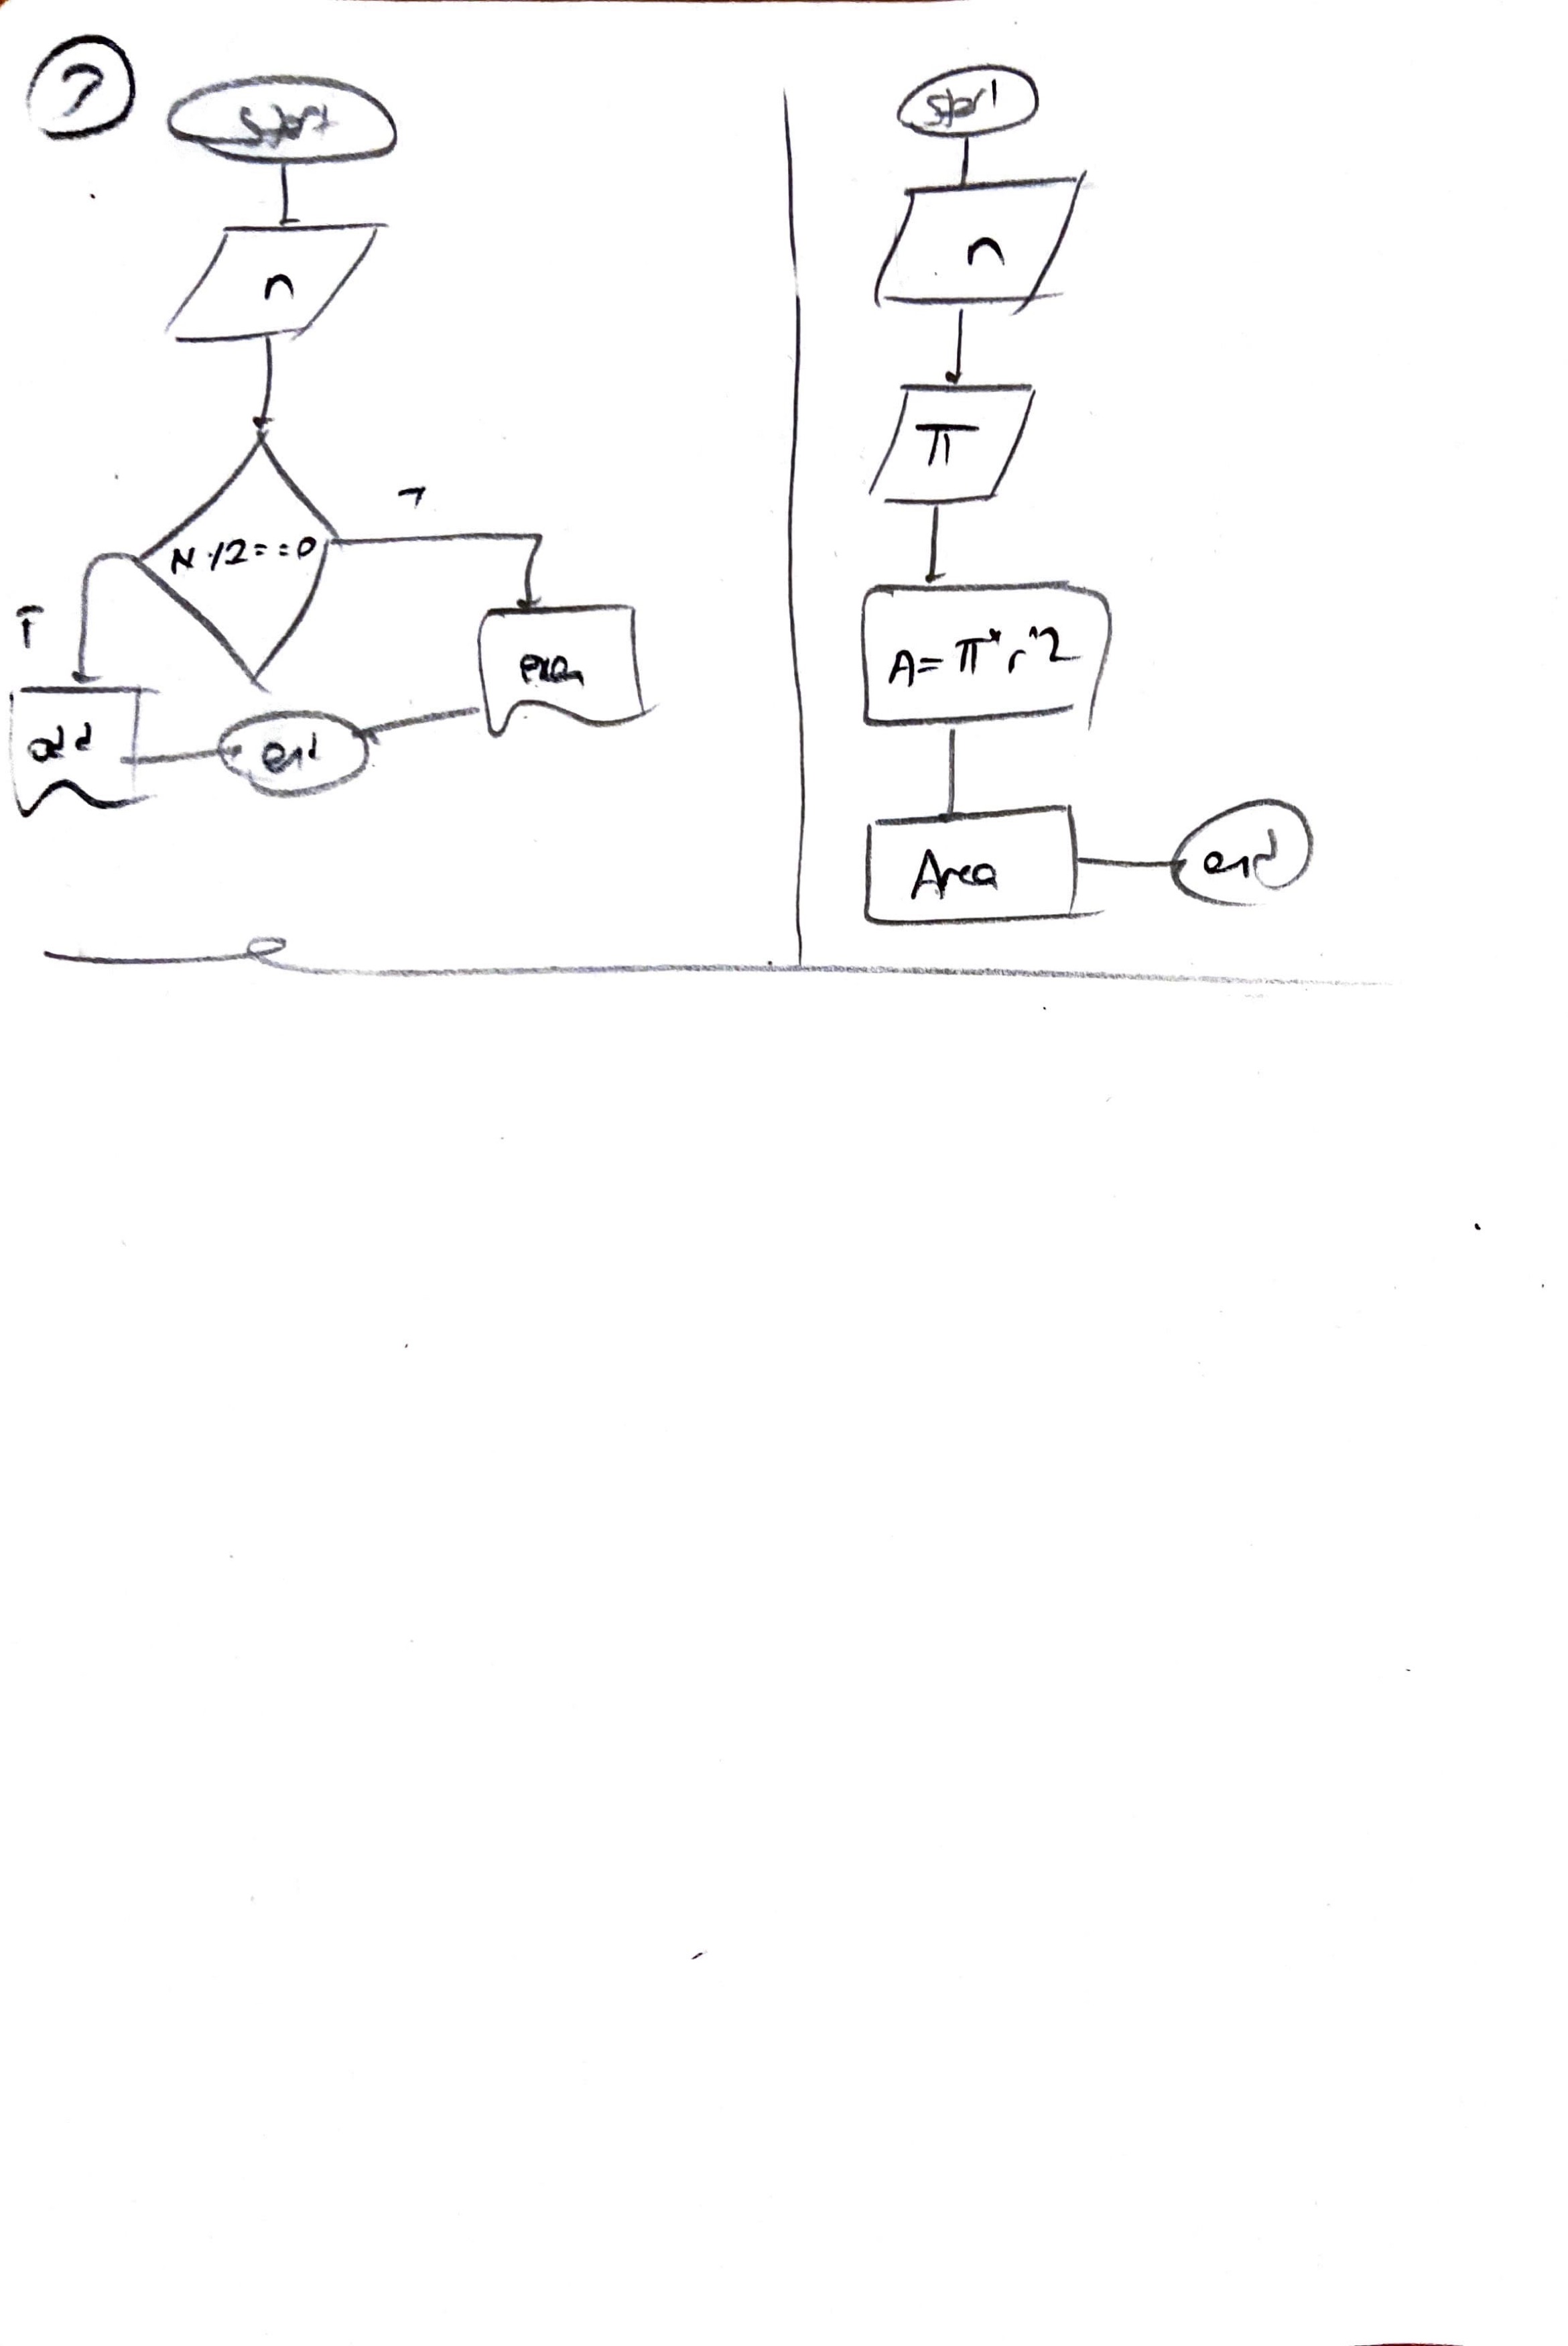 start
n
N%2==0
T
odd
end
start
n
π
A=π*r^2
Area
end